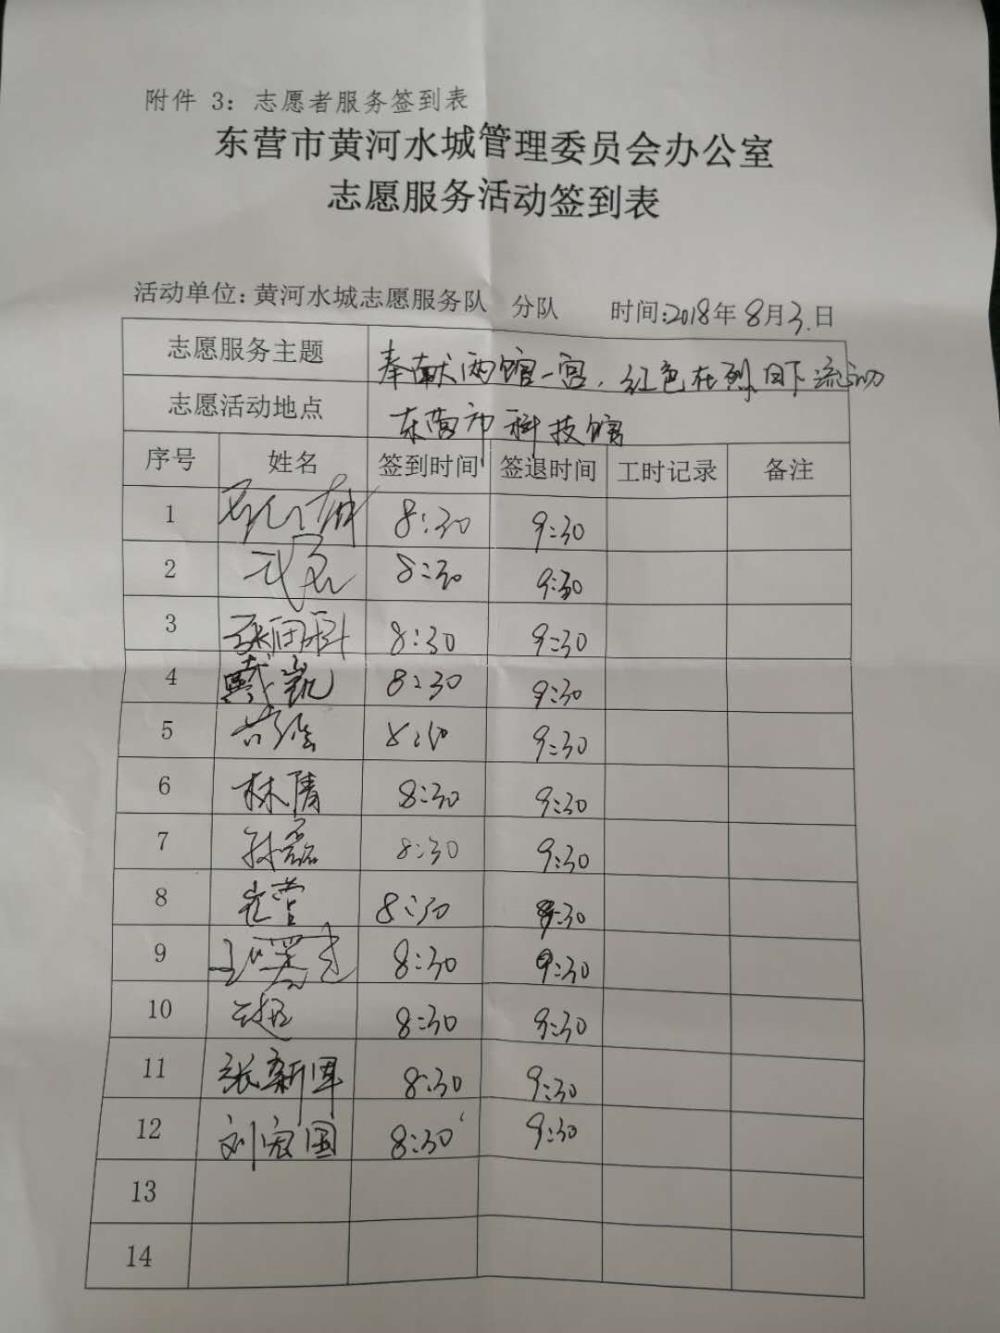 附件 3：志愿者服务签到表
东营市黄河水城管理委员会办公室
志愿服务活动签到表
活动单位：黄河水城志愿服务队 分队 时间：2018年8月3日
志愿服务主题 奉献两馆一宫，红色在烈日下流动
志愿活动地点 东营市科技馆
序号 姓名 签到时间 签退时间 工时记录 备注
1 8:30 9:30
2 8:30 9:30
3 8:30 9:30
4 戴凯 8:30 9:30
5 9:30
6 林倩 8:30 9:30
7 孙磊 8:30 9:30
8 崔营 8:30 9:30
9 8:30 9:30
10 8:30 9:30
11 张新军 8:30 9:30
12 刘宏国 8:30 9:30
13
14